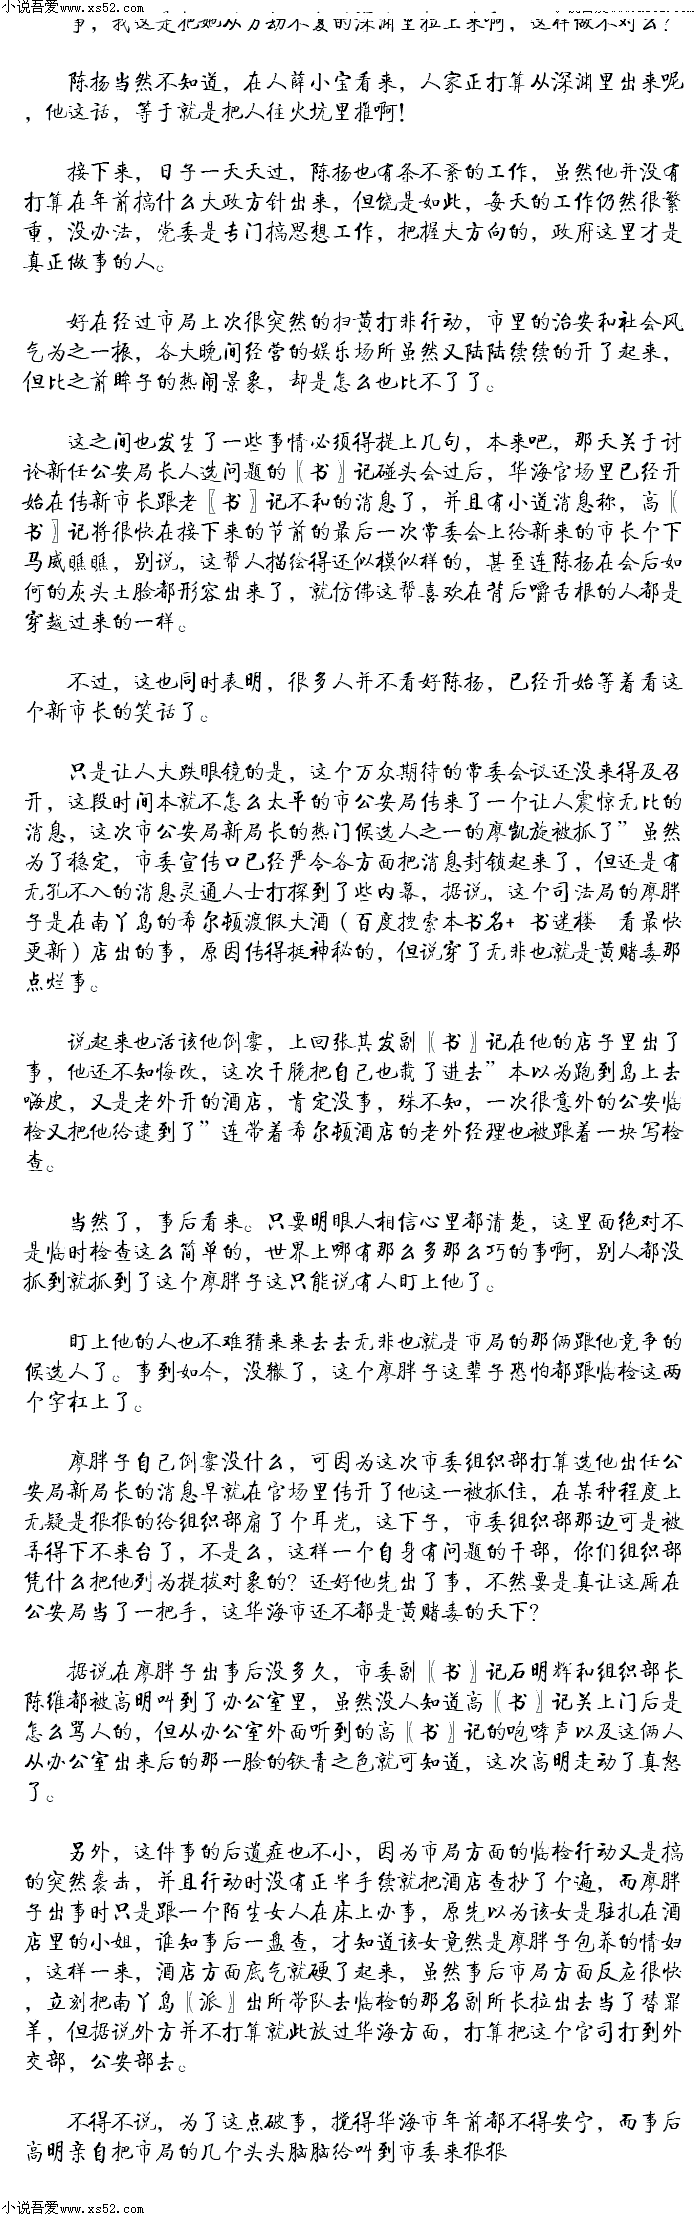 小说吾爱www.xs52.com
小说吾爱www.xs52.com
事，我这是把她从万劫不复的深渊里拉上来啊，这样做不对么？
陈扬当然不知道，在人薛小宝看来，人家正打算从深渊里出来呢
，他这话，等于就是把人往火坑里推啊！
接下来，日子一天天过，陈扬也有条不紊的工作，虽然他并没有
打算在年前搞什么大政方针出来，但饶是如此，每天的工作仍然很繁
重，没办法，党委是专门搞思想工作，把握大方向的，政府这里才是
真正做事的人。
好在经过市局上次很突然的扫黄打非行动，市里的治安和社会风
气为之一振，各大晚间经营的娱乐场所虽然又陆陆续续的开了起来，
但比之前眸子的热闹景象，却是怎么也比不了了。
这之间也发生了一些事情必须得提上几句，本来吧，那天关于讨
论新任公安局长人选问题的〖书〗记碰头会过后，华海官场里已经开
始在传新市长跟老〖书〗记不和的消息了，并且有小道消息称，高〖
书〗记将很快在接下来的节前的最后一次常委会上给新来的市长个下
马威瞧瞧，别说，这帮人描绘得还似模似样的，甚至连陈扬在会后如
何的灰头土脸都形容出来了，就仿佛这帮喜欢在背后嚼舌根的人都是
穿越过来的一样。
不过，这也同时表明，很多人并不看好陈扬，已经开始等着看这
个新市长的笑话了。
只是让人大跌眼镜的是，这个万众期待的常委会议还没来得及召
开，这段时间本就不怎么太平的市公安局传来了一个让人震惊无比的
消息，这次市公安局新局长的热门候选人之一的廖凯旋被抓了”虽然
为了稳定，市委宣传口已经严令各方面把消息封锁起来了，但还是有
无孔不入的消息灵通人士打探到了些内幕，据说，这个司法局的廖胖
子是在南丫岛的希尔顿渡假大酒（百度搜索本书名+ 书迷楼 看最快
更新）店出的事，原因传得挺神秘的，但说穿了无非也就是黄赌毒那
点烂事。
说起来也活该他倒霉，上回张其发副〖书〗记在他的店子里出了
事，他还不知悔改，这次干脆把自己也栽了进去”本以为跑到岛上去
嗨皮，又是老外开的酒店，肯定没事，殊不知，一次很意外的公安临
检又把他给逮到了”连带着希尔顿酒店的老外经理也被跟着一块写检
查。
当然了，事后看来。只要明眼人相信心里都清楚，这里面绝对不
是临时检查这么简单的，世界上哪有那么多那么巧的事啊，别人都没
抓到就抓到了这个廖胖子这只能说有人盯上他了。
盯上他的人也不难猜来来去去无非也就是市局的那俩跟他竞争的
候选人了。事到如今，没辙了，这个廖胖子这辈子恐怕都跟临检这两
个字杠上了。
廖胖子自己倒霉没什么，可因为这次市委组织部打算选他出任公
安局新局长的消息早就在官场里传开了他这一被抓住，在某种程度上
无疑是狠狠的给组织部扇了个耳光，这下子，市委组织部那边可是被
弄得下不来台了，不是么，这样一个自身有问题的干部，你们组织部
凭什么把他列为提拔对象的？还好他先出了事，不然要是真让这厮在
公安局当了一把手，这华海市还不都是黄赌毒的天下？
据说在廖胖子出事后没多久，市委副〖书〗记石明辉和组织部长
陈维都被高明叫到了办公室里，虽然没人知道高〖书〗记关上门后是
怎么骂人的，但从办公室外面听到的高〖书〗记的咆哮声以及这俩人
从办公室出来后的那一脸的铁青之色就可知道，这次高明走动了真怒
了。
另外，这件事的后遗症也不小，因为市局方面的临检行动又是搞
的突然袭击，并且行动时没有正半手续就把酒店查抄了个遍，而廖胖
子出事时只是跟一个陌生女人在床上办事，原先以为该女是驻扎在酒
店里的小姐，谁知事后一盘查，才知道该女竟然是廖胖子包养的情妇
，这样一来，酒店方面底气就硬了起来，虽然事后市局方面反应很快
，立刻把南丫岛〖派〗出所带队去临检的那名副所长拉出去当了替罪
羊，但据说外方并不打算就此放过华海方面，打算把这个官司打到外
交部，公安部去。
不得不说，为了这点破事，搅得华海市年前都不得安宁，而事后
高明亲自把市局的几个头头脑脑给叫到市委来狠狠
小说吾爱www.xs52.com
小说吾爱www.xs52.com